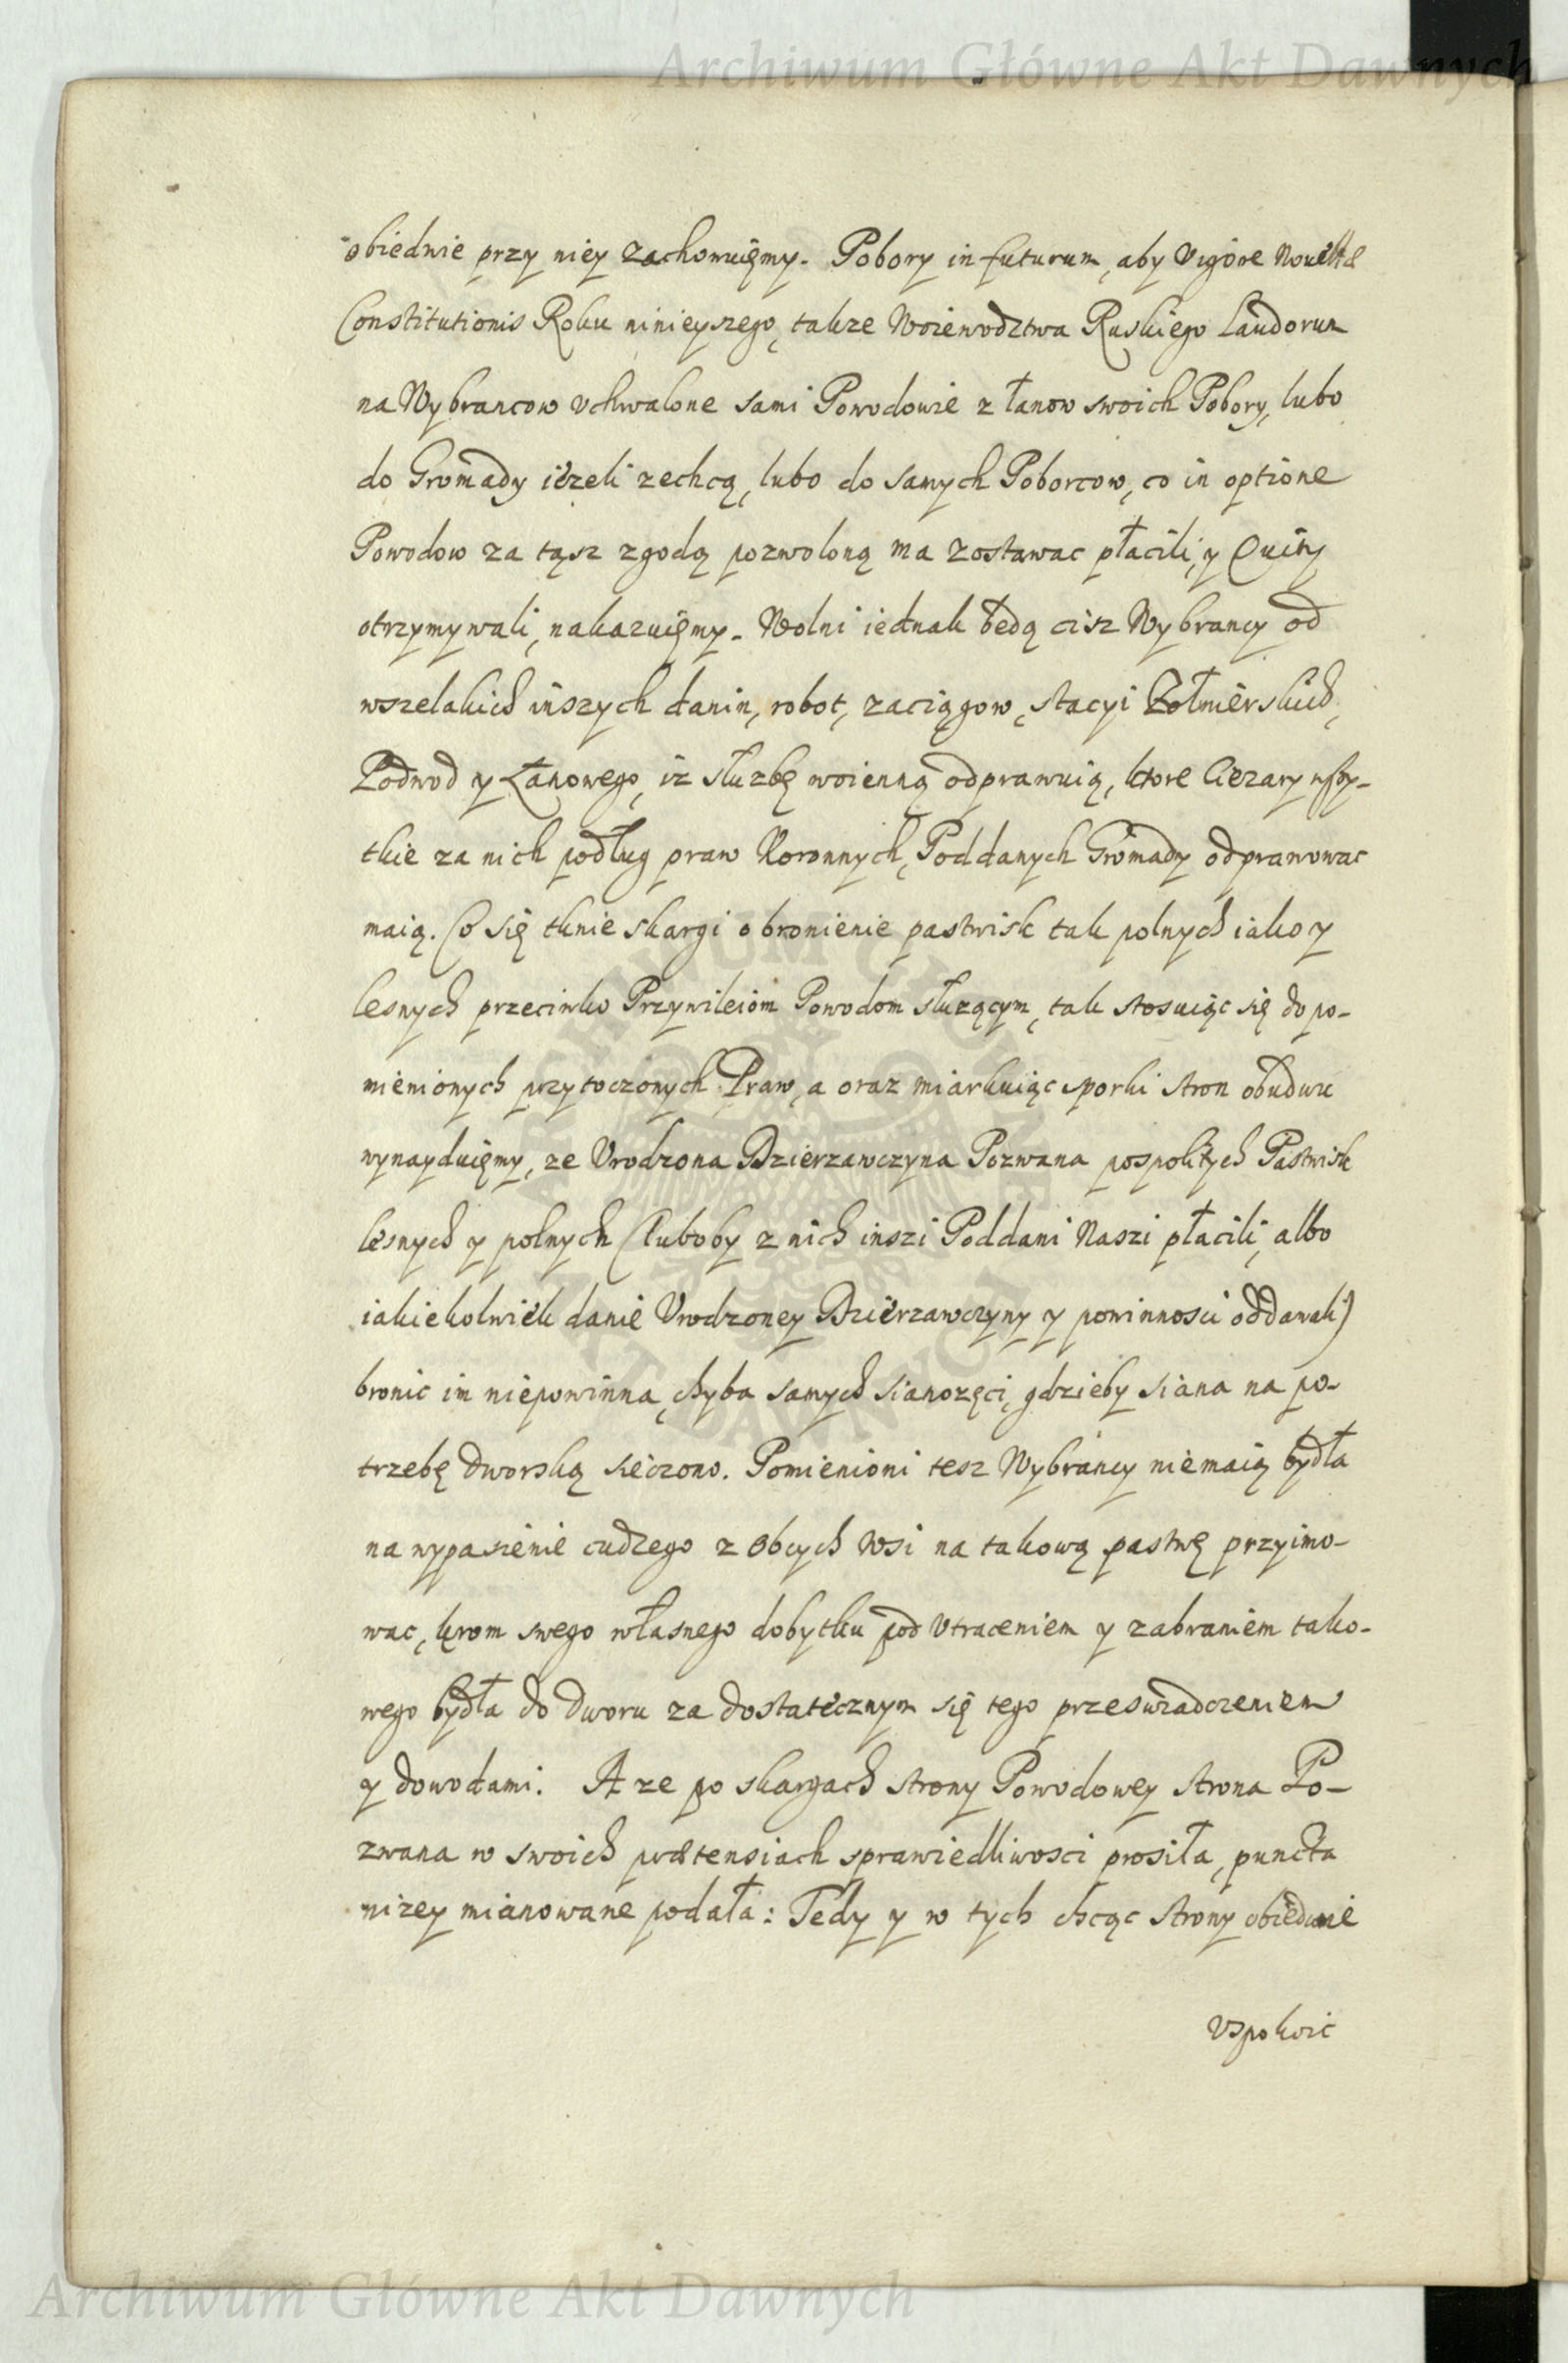 Archiwum Główne Akt Dawnych
obiednie przy niey zachowuięmy. Pobory in futurum, aby Vigore Novellæ
Constitutionis Roku ninieyszego, takze Woiewodztwa Ruskiego Laudorum
na Wybrancow vchwalone sami Powodowie z łanow swoich Pobory, lubo
do Gromady iezeli zechcą, lubo do samych Poborcow, co in optione
Powodow za tąsz zgodą pozwoloną ma zostawac płacili, y Quity
otrzymywali, nakazuięmy. Wolni iednak będą cisz Wybrancy od
wszelakich inszych danin, robot, zaciągow, stacyi Zołnierskich,
Podwod y Łanowego, iz słuzbę woienną odprawuią, ktore Ciezary wszy-
tkie za nich podług praw Koronnych, Poddanych Gromady odprawowac
maią. Co się tknie skargi o bronienie pastwisk tak polnych iako y
lesnych przeciwko Przywileiom Powodom słuzącym, tak stosuiąc się do po-
mienionych przytoczonych Praw, a oraz miarkuiąc sporki stron obudwu
wynayduięmy, ze Vrodzona Dzierzawczyna Pozwana pospolitych Pastwisk
lesnych y polnych (luboby z nich inszi Poddani Naszi płacili, albo
iakiekolwiek danie Vrodzoney Dzierzawczyny y powinnosci oddawali)
bronic im niepowinna, chyba samych sianozęci, gdzieby siana na po-
trzebę dworską sieczono. Pomienioni tesz Wybrancy niemaią bydła
na wypasienie cudzego z obcych Wsi na takową pastwę przyimo-
wac, krom swego własnego dobytku pod Vtraceniem y zabraniem tako-
wego bydła do dworu za dostatecznym się tego przeswiadczeniem
y dowodami. A ze po skargach strony Powodowey strona Po-
zwana w swoich prætensiach sprawiedliwosci prosiła, puncta
nizey mianowane podała: Tedy y w tych chcąc strony obiedwie
Vspokoic
Archiwum Główne Akt Dawnych